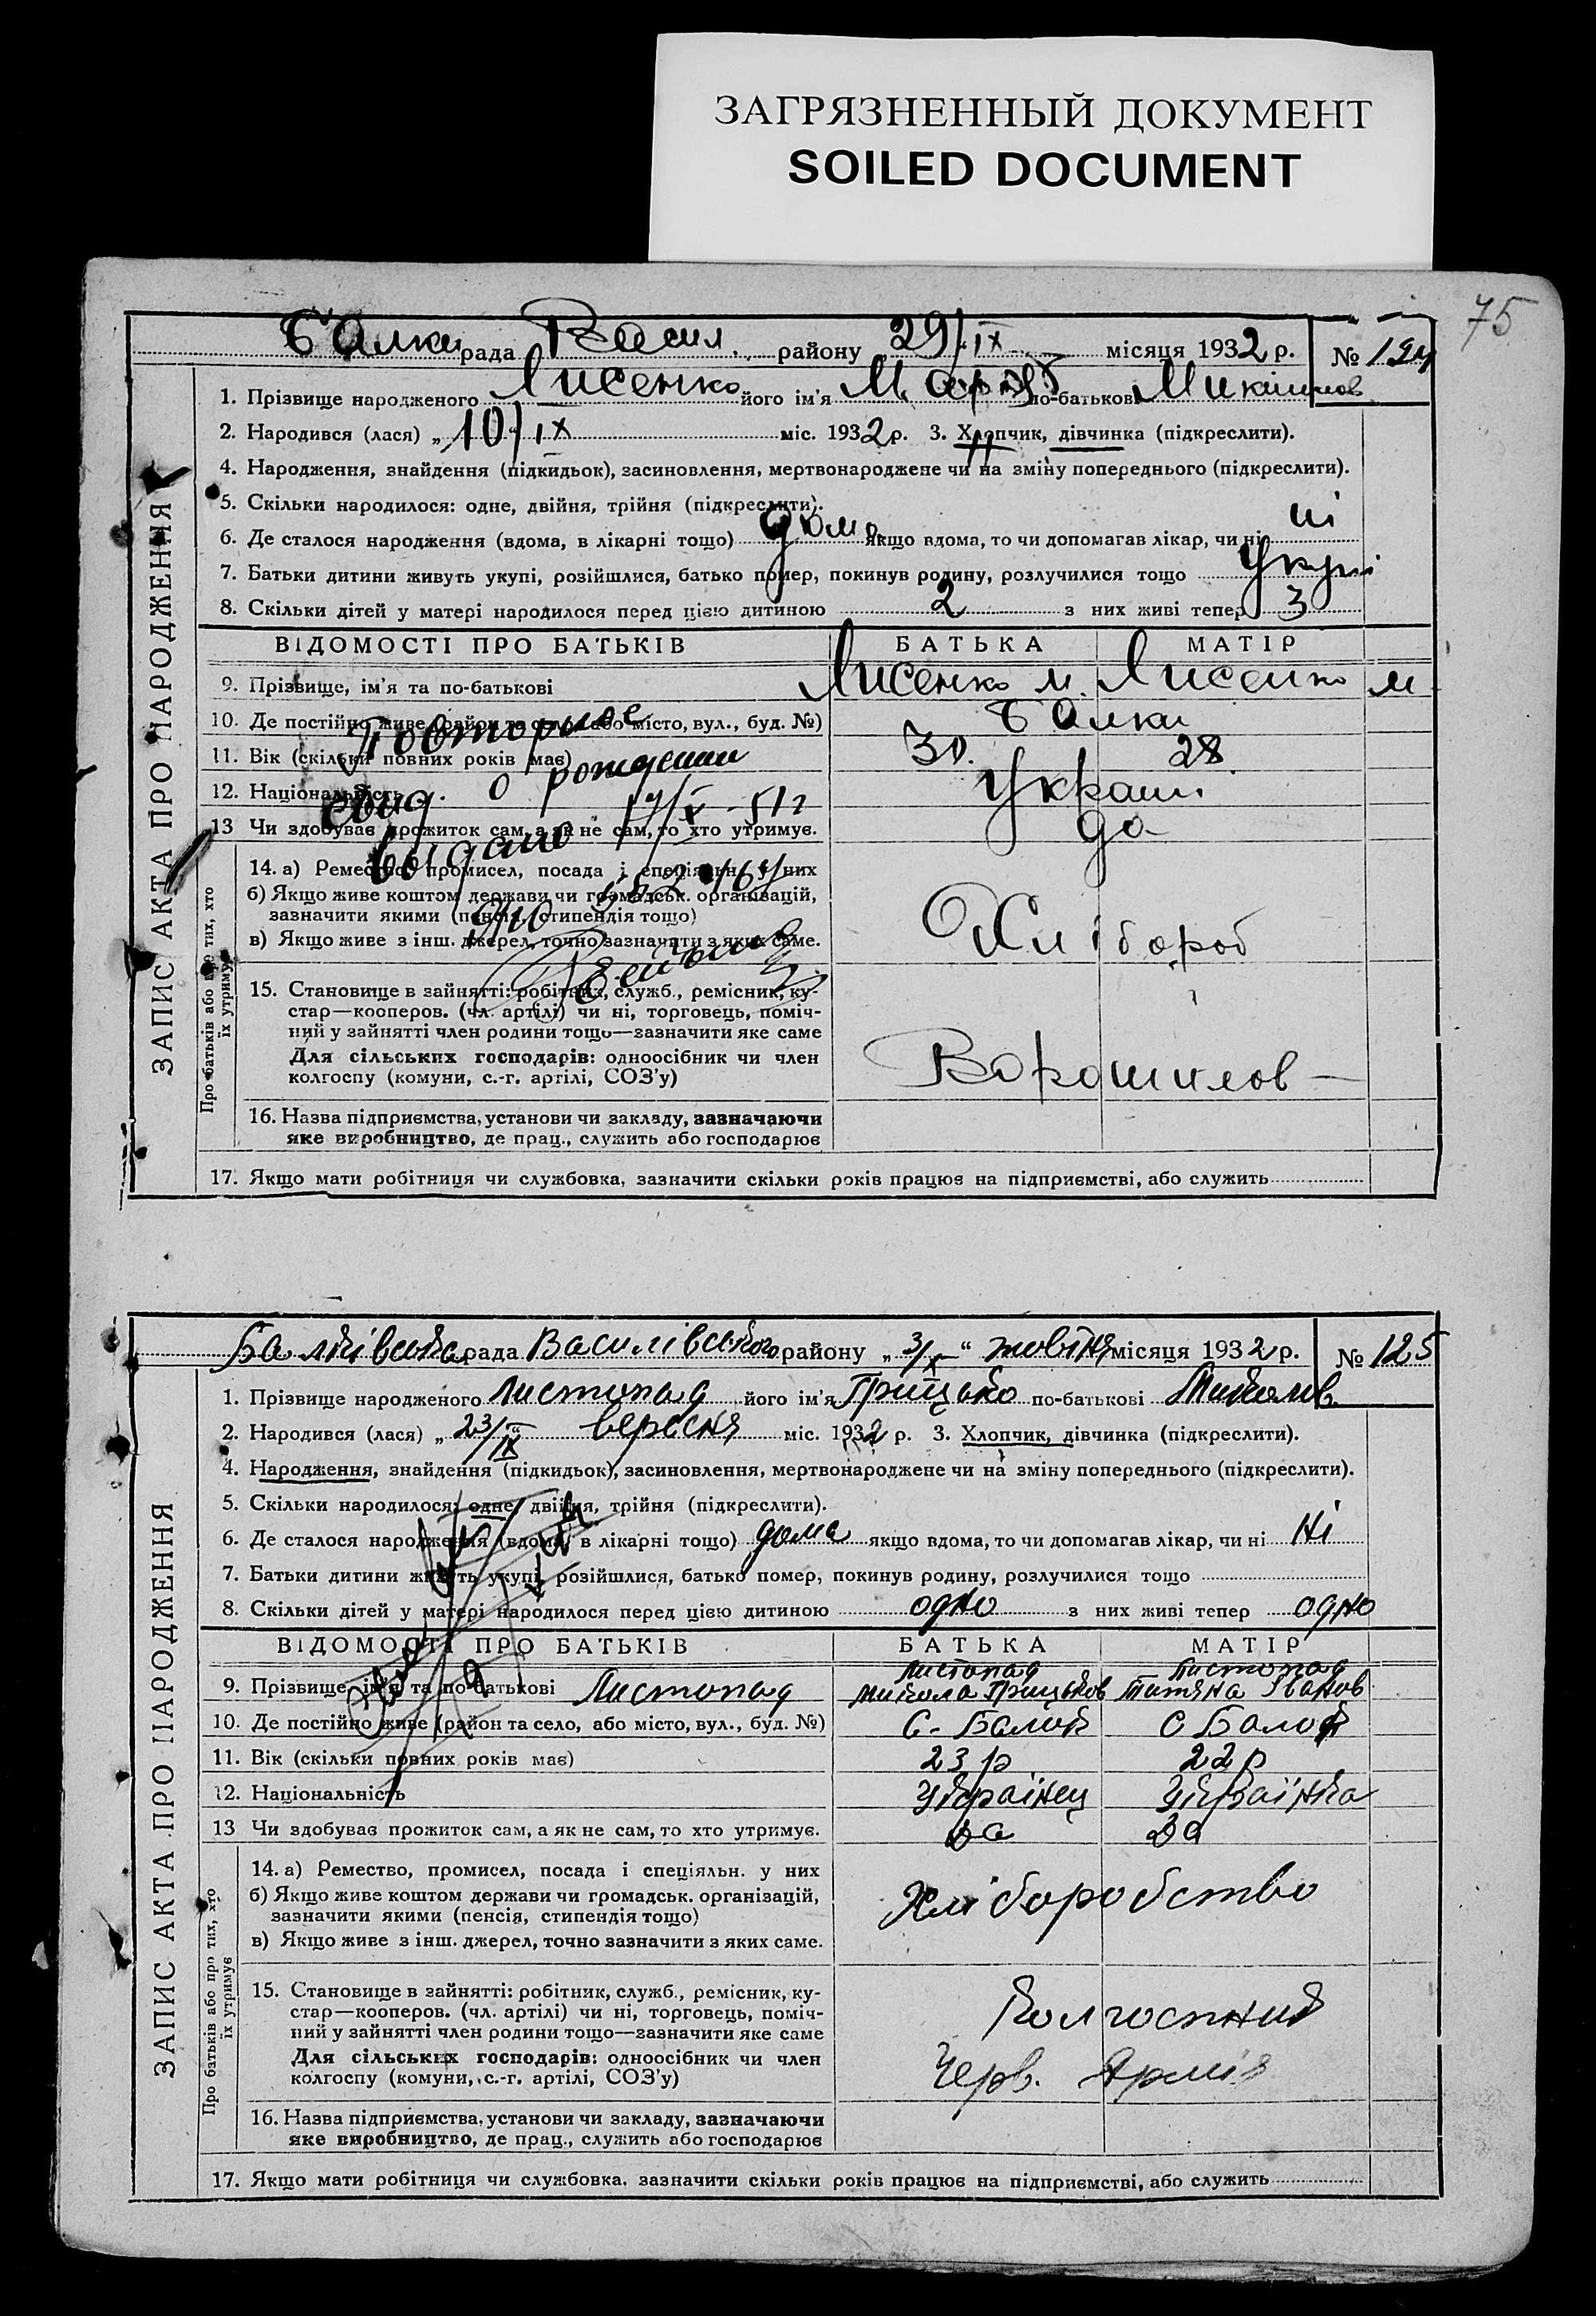 ЗАГРЯЗНЕННЫЙ ДОКУМЕНТ
SOILED DOCUMENT
75
ЗАПИС АКТА ПРО НАРОДЖЕННЯ
Балки рада Васил. району 29/IX місяця 1932 р. № 124
1. Прізвище народженого Лисенко його ім'я Марія по-батькові
2. Народився (лася) „ 10/IX міс. 1932 р. 3. Хлопчик, дівчинка (підкреслити).
4. Народження, знайдення (підкидьок), засиновлення, мертвонароджене чи на зміну попереднього (підкреслити).
5. Скільки народилося: одне, двійня, трійня (підкреслити).
6. Де сталося народження (вдома, в лікарні тощо) дома якщо вдома, то чи допомагав лікар, чи ні ні
7. Батьки дитини живуть укупі, розійшлися, батько помер, покинув родину, розлучилися тощо укупі
8. Скільки дітей у матері народилося перед цією дитиною 2 з них живі тепер 3
ВІДОМОСТІ ПРО БАТЬКІВ БАТЬКА МАТІР
9. Прізвище, ім'я та по-батькові Лисенко М. Лисенко М
10. Де постійно живе (район та село, або місто, вул., буд. №) Балки
11. Вік (скільки повних років має) 30. 28
12. Національність Україн.
13 Чи здобуває прожиток сам, а як не сам, то хто утримує. да
Повторное
свид. о рождении
выдано 17/X-51г
Про батьків або про тих, хто їх утримує
14. а) Ремество, промисел, посада і спеціяльн. у них
б) Якщо живе коштом держави чи громадськ. організацій,
зазначити якими (пенсія, стипендія тощо)
в) Якщо живе з інш. джерел, точно зазначити з яких саме.
Хлібороб
15. Становище в зайнятті: робітник, служб., ремісник, ку-
стар—кооперов. (чл. артілі) чи ні, торговець, поміч-
ний у зайнятті член родини тощо—зазначити яке саме
Для сільських господарів: одноосібник чи член
колгоспу (комуни, с.-г. артілі, СОЗ'у)
Ворошилов
16. Назва підприємства, установи чи закладу, зазначаючи
яке виробництво, де прац., служить або господарює
17. Якщо мати робітниця чи службовка, зазначити скільки років працює на підприємстві, або служить
ЗАПИС АКТА ПРО НАРОДЖЕННЯ
Балківська рада Василівського району „ 3/X “ жовтня місяця 1932 р. № 125
1. Прізвище народженого Листопад його ім'я Грицько по-батькові Миколов.
2. Народився (лася) „ 23/IX “ вересня міс. 1932 р. 3. Хлопчик, дівчинка (підкреслити).
4. Народження, знайдення (підкидьок), засиновлення, мертвонароджене чи на зміну попереднього (підкреслити).
5. Скільки народилося: одне, двійня, трійня (підкреслити).
6. Де сталося народження (вдома, в лікарні тощо) дома якщо вдома, то чи допомагав лікар, чи ні Ні
7. Батьки дитини живуть укупі, розійшлися, батько помер, покинув родину, розлучилися тощо
8. Скільки дітей у матері народилося перед цією дитиною одно з них живі тепер одно
ВІДОМОСТІ ПРО БАТЬКІВ БАТЬКА МАТІР
Листопад Листопад
9. Прізвище, ім'я та по-батькові Листопад Микола Грицьков Татяна Іванов
10. Де постійно живе (район та село, або місто, вул., буд. №) С. Балки С Балки
11. Вік (скільки повних років має) 23 р 22 р
12. Національність Українец Українка
13 Чи здобуває прожиток сам, а як не сам, то хто утримує. Да Да
Про батьків або про тих, хто їх утримує
14. а) Ремество, промисел, посада і спеціяльн. у них
б) Якщо живе коштом держави чи громадськ. організацій,
зазначити якими (пенсія, стипендія тощо)
в) Якщо живе з інш. джерел, точно зазначити з яких саме.
Хліборобство
15. Становище в зайнятті: робітник, служб., ремісник, ку-
стар—кооперов. (чл. артілі) чи ні, торговець, поміч-
ний у зайнятті член родини тощо—зазначити яке саме
Для сільських господарів: одноосібник чи член
колгоспу (комуни, с.-г. артілі, СОЗ'у)
Колгоспник
Черв. Армія
16. Назва підприємства, установи чи закладу, зазначаючи
яке виробництво, де прац., служить або господарює
17. Якщо мати робітниця чи службовка, зазначити скільки років працює на підприємстві, або служить